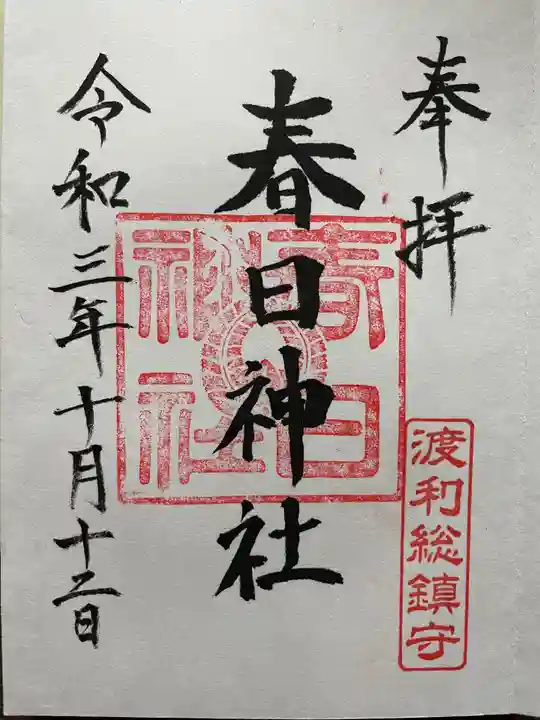 奉拝
渡利総鎮守
春日神社
春日神社
令和三年十月十二日